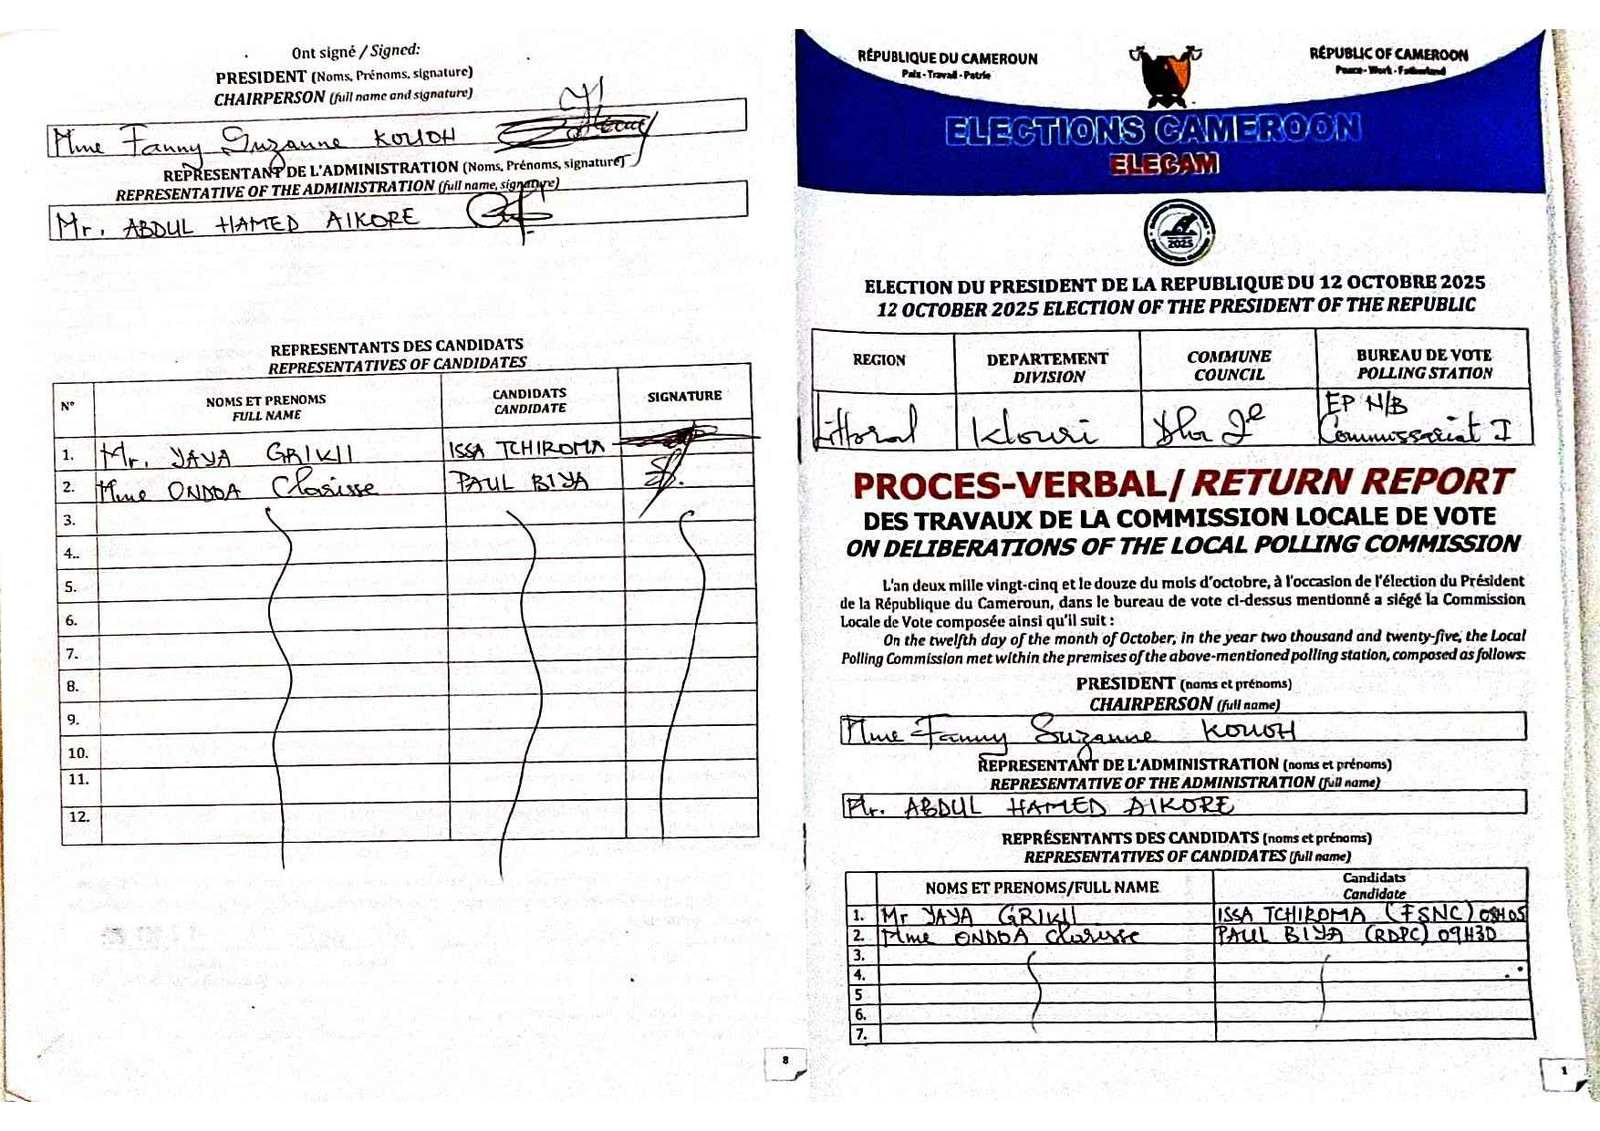 Ont signé / Signed:
PRESIDENT (Noms, Prénoms, signature)
CHAIRPERSON (full name and signature)
Mme Fanny Suzanne KOUOH
REPRESENTANT DE L'ADMINISTRATION (Noms, Prénoms, signature)
REPRESENTATIVE OF THE ADMINISTRATION (full name, signature)
Mr. ABDUL HAMED AIKORE
REPRESENTANTS DES CANDIDATS
REPRESENTATIVES OF CANDIDATES
N° NOMS ET PRENOMS FULL NAME CANDIDATS CANDIDATE SIGNATURE
1. Mr. YAYA GRIKII ISSA TCHIROMA
2. Mme ONDOA Clarisse PAUL BIYA
3.
4..
5.
6.
7.
8.
9.
10.
11.
12.
8
RÉPUBLIQUE DU CAMEROUN
Paix - Travail - Patrie
RÉPUBLIC OF CAMEROON
Peace - Work - Fatherland
ELECTIONS CAMEROON
ELECAM
2025
ELECTION DU PRESIDENT DE LA REPUBLIQUE DU 12 OCTOBRE 2025
12 OCTOBER 2025 ELECTION OF THE PRESIDENT OF THE REPUBLIC
REGION DEPARTEMENT DIVISION COMMUNE COUNCIL BUREAU DE VOTE POLLING STATION
Littoral Wouri Dla 2e EP N/B Commissariat I
PROCES-VERBAL/ RETURN REPORT
DES TRAVAUX DE LA COMMISSION LOCALE DE VOTE
ON DELIBERATIONS OF THE LOCAL POLLING COMMISSION
L'an deux mille vingt-cinq et le douze du mois d'octobre, à l'occasion de l'élection du Président
de la République du Cameroun, dans le bureau de vote ci-dessus mentionné a siégé la Commission
Locale de Vote composée ainsi qu'il suit :
On the twelfth day of the month of October, in the year two thousand and twenty-five, the Local
Polling Commission met within the premises of the above-mentioned polling station, composed as follows:
PRESIDENT (noms et prénoms)
CHAIRPERSON (full name)
Mme Fanny Suzanne KOUOH
REPRESENTANT DE L'ADMINISTRATION (noms et prénoms)
REPRESENTATIVE OF THE ADMINISTRATION (full name)
Mr. ABDUL HAMED AIKORE
REPRÉSENTANTS DES CANDIDATS (noms et prénoms)
REPRESENTATIVES OF CANDIDATES (full name)
NOMS ET PRENOMS/FULL NAME Candidats Candidate
1. Mr YAYA GRIKII ISSA TCHIROMA (FSNC) 08H05
2. Mme ONDOA Clarisse PAUL BIYA (RDPC) 09H30
3.
4.
5
6.
7.
1